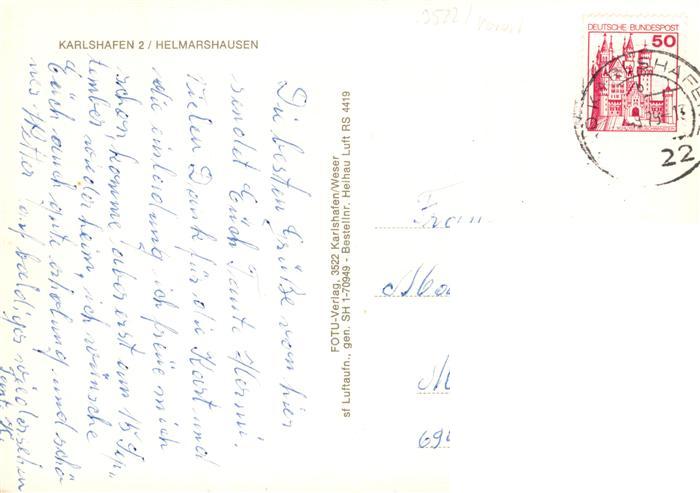 KARLSHAFEN 2 / HELMARSHAUSEN
Die besten Grüße von hier
sendet Euch Tante Hermi.
Vielen Dank für die Karte und
die einladung ich freue mich
schon, komme aber erst am 15 Sep„
tember wieder heim, ich wünsche
Euch auch gute erholung und schö
nes Wetter auf baldiges wiedersehen
Tante H.
FOTU-Verlag, 3522 Karlshafen/Weser
sf Luftaufn., gen. SH 1-70949 - Bestellnr. Heihau Luft RS 4419
DEUTSCHE BUNDESPOST
50
KARLSHAFE
22
Fram
69